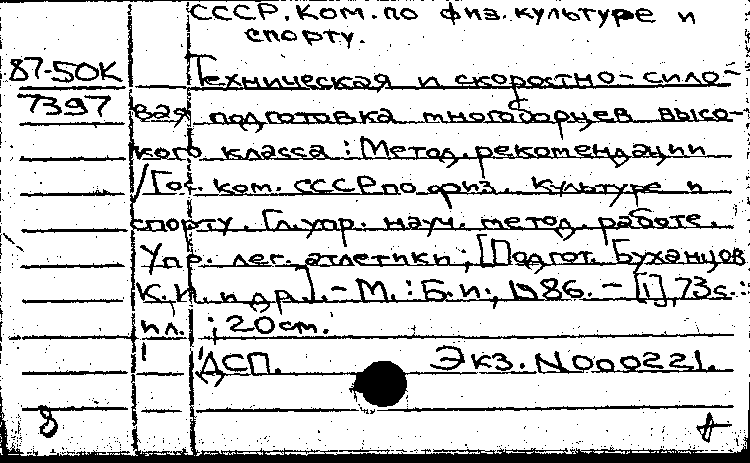 СССР. Ком. по физ. культуре и
спорту.
87-50К
Техническая и скоростно-сило-
7397
вая подготовка многоборцев высо-
кого класса : Метод. рекомендации
/ Гос. ком. СССР по физ. культуре и
спорту. Гл. упр. науч. метод. работе.
Упр. лег. атлетики ; [Подгот. Буханцов
К.И. и др.]. - М. : Б.и., 1986. - [1], 73с. :
ил. ; 20 см.
ДСП. Экз. N000221.